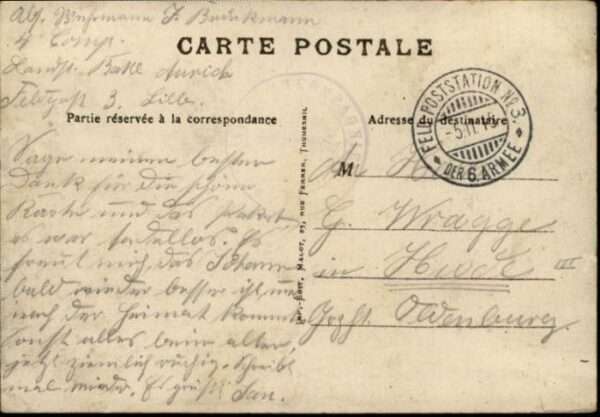 Abs. Wehrmann J. Brinkmann
4 Comp.
Landst. Batl. Aurich
Feldpost 3. Lille.
CARTE POSTALE
Partie réservée à la correspondance
Adresse du destinataire
FELDPOSTSTATION No 3.
-5.11.15
DER 6. ARMEE
Sage meinen besten
Dank für die schöne
Karte und das Paket
es war tadellos. Es
freut mich, das Johann
bald wieder besser ist und
nach der Heimat kommt
sonst alles beim alten,
jetzt ziemlich ruhig. Schreibt
mal wieder. Es grüßt Jan.
MALOT, RUE FERRER, THUMESNIL
M
An H
G. Wragge
in Hude III
Grhzt. Oldenburg.